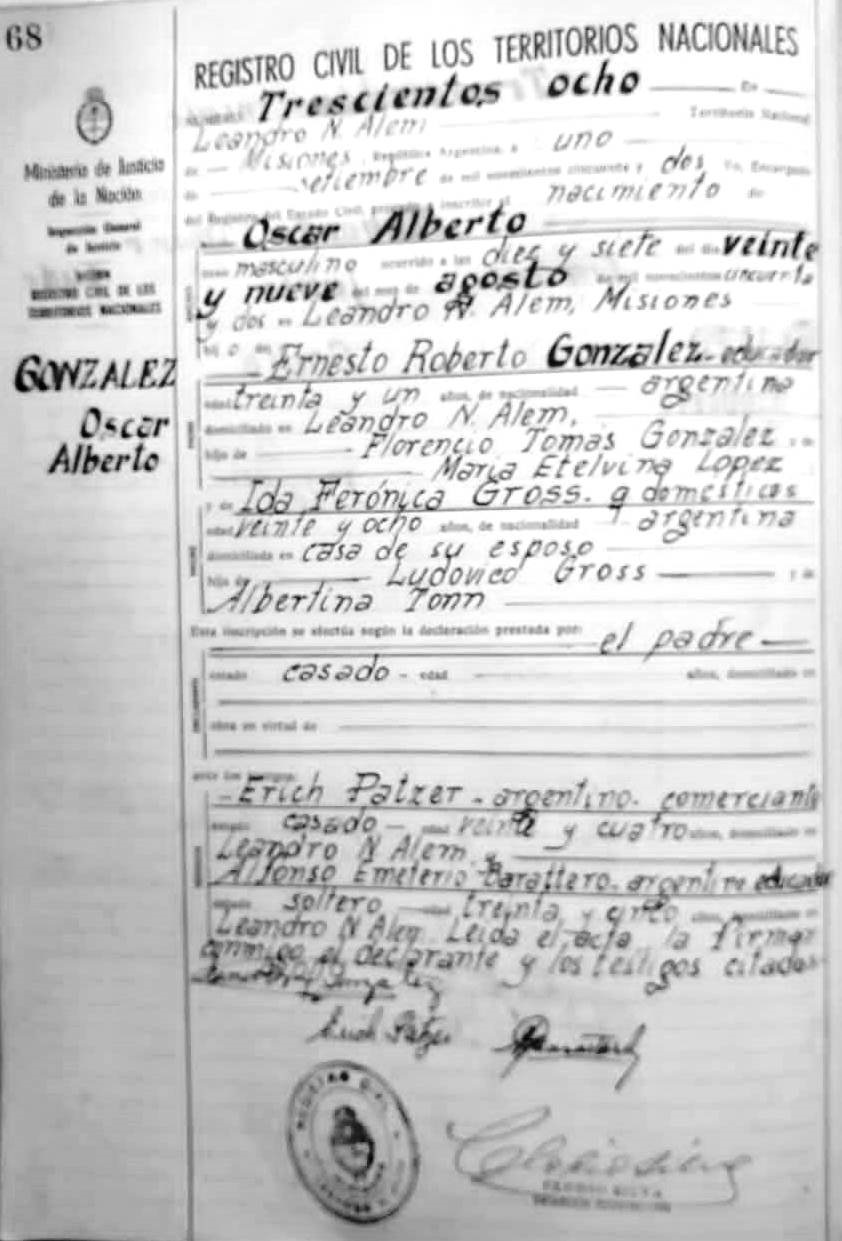 68
REGISTRO CIVIL DE LOS TERRITORIOS NACIONALES
Trescientos ocho En
Leandro N. Alem Territorio Nacional
de Misiones, República Argentina, a uno
de setiembre de mil novecientos cincuenta y dos Yo, Encargado
del Registro del Estado Civil, procedo a inscribir el nacimiento de
Oscar Alberto
sexo masculino ocurrido a las diez y siete del día veinte
y nueve del mes de agosto de mil novecientos cincuenta
y dos en Leandro N. Alem, Misiones
hijo de
Ernesto Roberto Gonzalez - educador
edad treinta y un años, de nacionalidad argentina
domiciliado en Leandro N. Alem,
hijo de Florencio Tomas Gonzalez
Maria Etelvina Lopez
y de Ida Ferónica Gross. q domesticos
edad veinte y ocho años, de nacionalidad argentina
domiciliada en casa de su esposo
hija de Ludovico Gross y de
Albertina Tonn
Esta inscripción se efectúa según la declaración prestada por: el padre
estado casado - edad años, domiciliado en
obra en virtud de
ante los testigos
Erich Patzer - argentino - comerciante
estado casado - edad veinte y cuatro años, domiciliado en
Leandro N Alem y
Alfonso Emeterio Barattero - argentino educador
estado soltero edad treinta y cinco años, domiciliado en
Leandro N Alem Leida el acta, la firman
conmigo el declarante y los testigos citados
Erich Patzer
REGISTRO CIVIL
Ministerio de Justicia
de la Nación
Inspección General
de Justicia
REGISTRO CIVIL DE LOS
TERRITORIOS NACIONALES
GONZALEZ
Oscar
Alberto